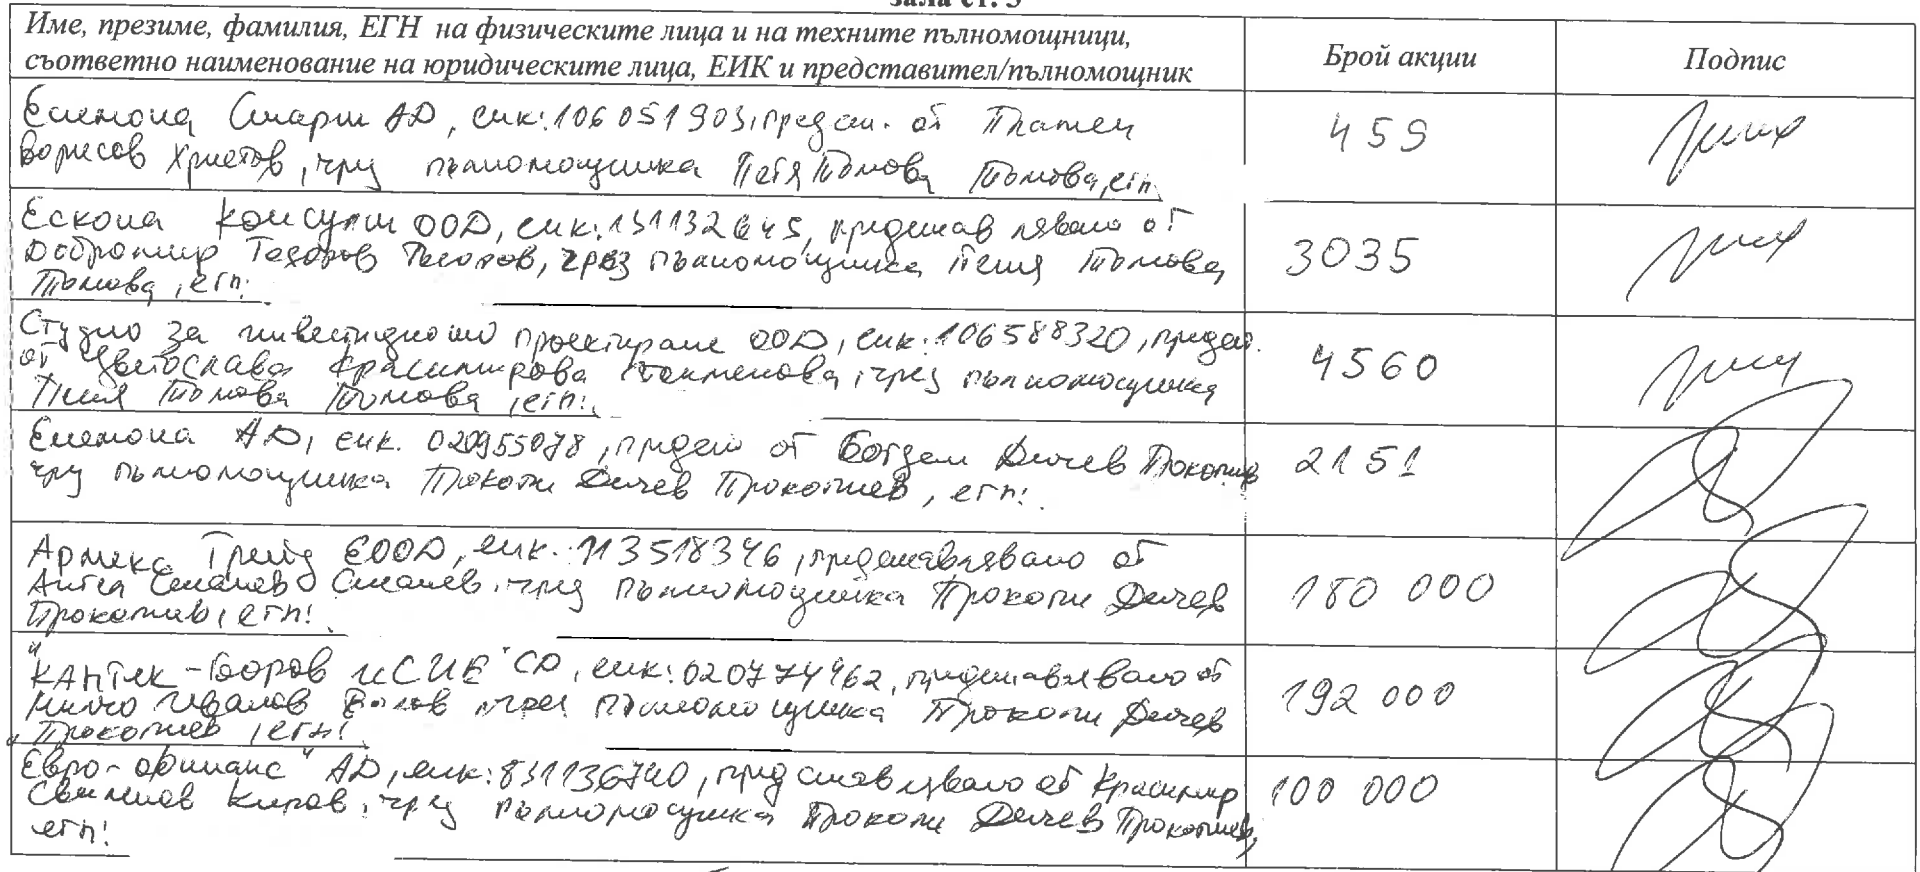 зала ст. 3
Име, презиме, фамилия, ЕГН на физическите лица и на техните пълномощници,
съответно наименование на юридическите лица, ЕИК и представител/пълномощник
Брой акции
Подпис
Елемона Смарт АД, еик: 106051903, предст. от Пламен
Борисов Христов, чрез пълномощника Петя Томова Томова, егн
459
Ескона Консулт ООД, еик: 131132645, представлявано от
Добромир Тодоров Тодоров, чрез пълномощника Петя Томова
Томова, егн:
3035
Студио за инвестиционно проектиране ООД, еик: 106588320, предст.
от Цветослава Красимирова чрез пълномощника
Петя Томова Томова, егн:
4560
Елемона АД, еик. 020955078, предст. от Богдан Дичев Прокопиев
чрез пълномощника Прокопи Дичев Прокопиев, егн:
2151
Армека Трейд ЕООД, еик. 113518346, представлявано от
Ангел Смилев Смилев, чрез пълномощника Прокопи Дичев
Прокопиев, егн:
180 000
"КАНТЕК - и СИЕ" СД, еик: 020774462, представлявано от
Иванов чрез пълномощника Прокопи Дичев
Прокопиев, егн:
192 000
"Евро-финанс" АД, еик: 831136740, представлявано от Красимир
Киров, чрез пълномощника Прокопи Дичев Прокопиев,
егн:
100 000